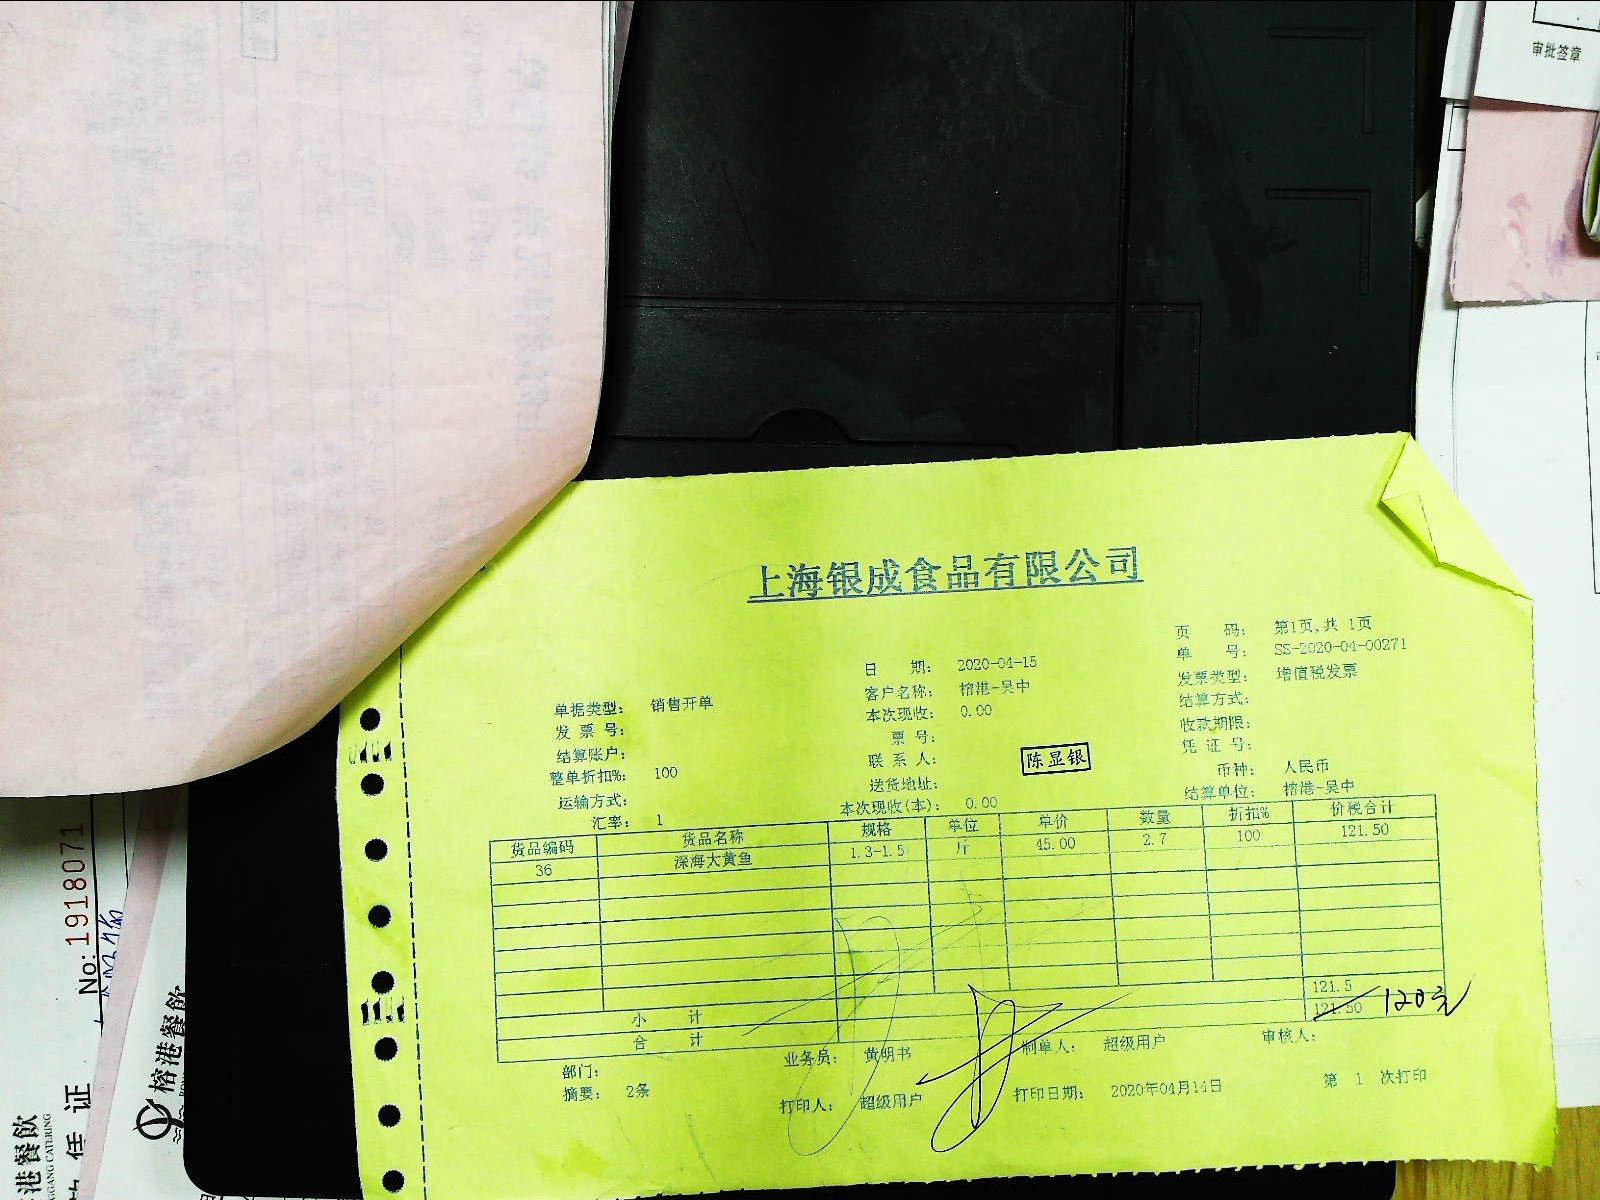 审批签章
上海银成食品有限公司
页 码: 第1页,共 1页
单 号: SS-2020-04-00271
日 期: 2020-04-15
发票类型: 增值税发票
客户名称: 榕港-吴中
结算方式:
单据类型: 销售开单
本次现收: 0.00
收款期限:
发 票 号:
票 号:
凭 证 号:
结算账户:
联 系 人:
陈显银
币种: 人民币
整单折扣%: 100
送货地址:
结算单位: 榕港-吴中
运输方式:
本次现收(本): 0.00
汇率: 1
货品编码 货品名称 规格 单位 单价 数量 折扣% 价税合计
36 深海大黄鱼 1.3-1.5 斤 45.00 2.7 100 121.50
小 计 121.5
合 计 121.50 120元
部门: 业务员: 黄明书 制单人: 超级用户 审核人:
摘要: 2条 打印人: 超级用户 打印日期: 2020年04月14日 第 1 次打印
No: 1918071
榕港餐飲
港餐飲
GGANG CATERING
任 证